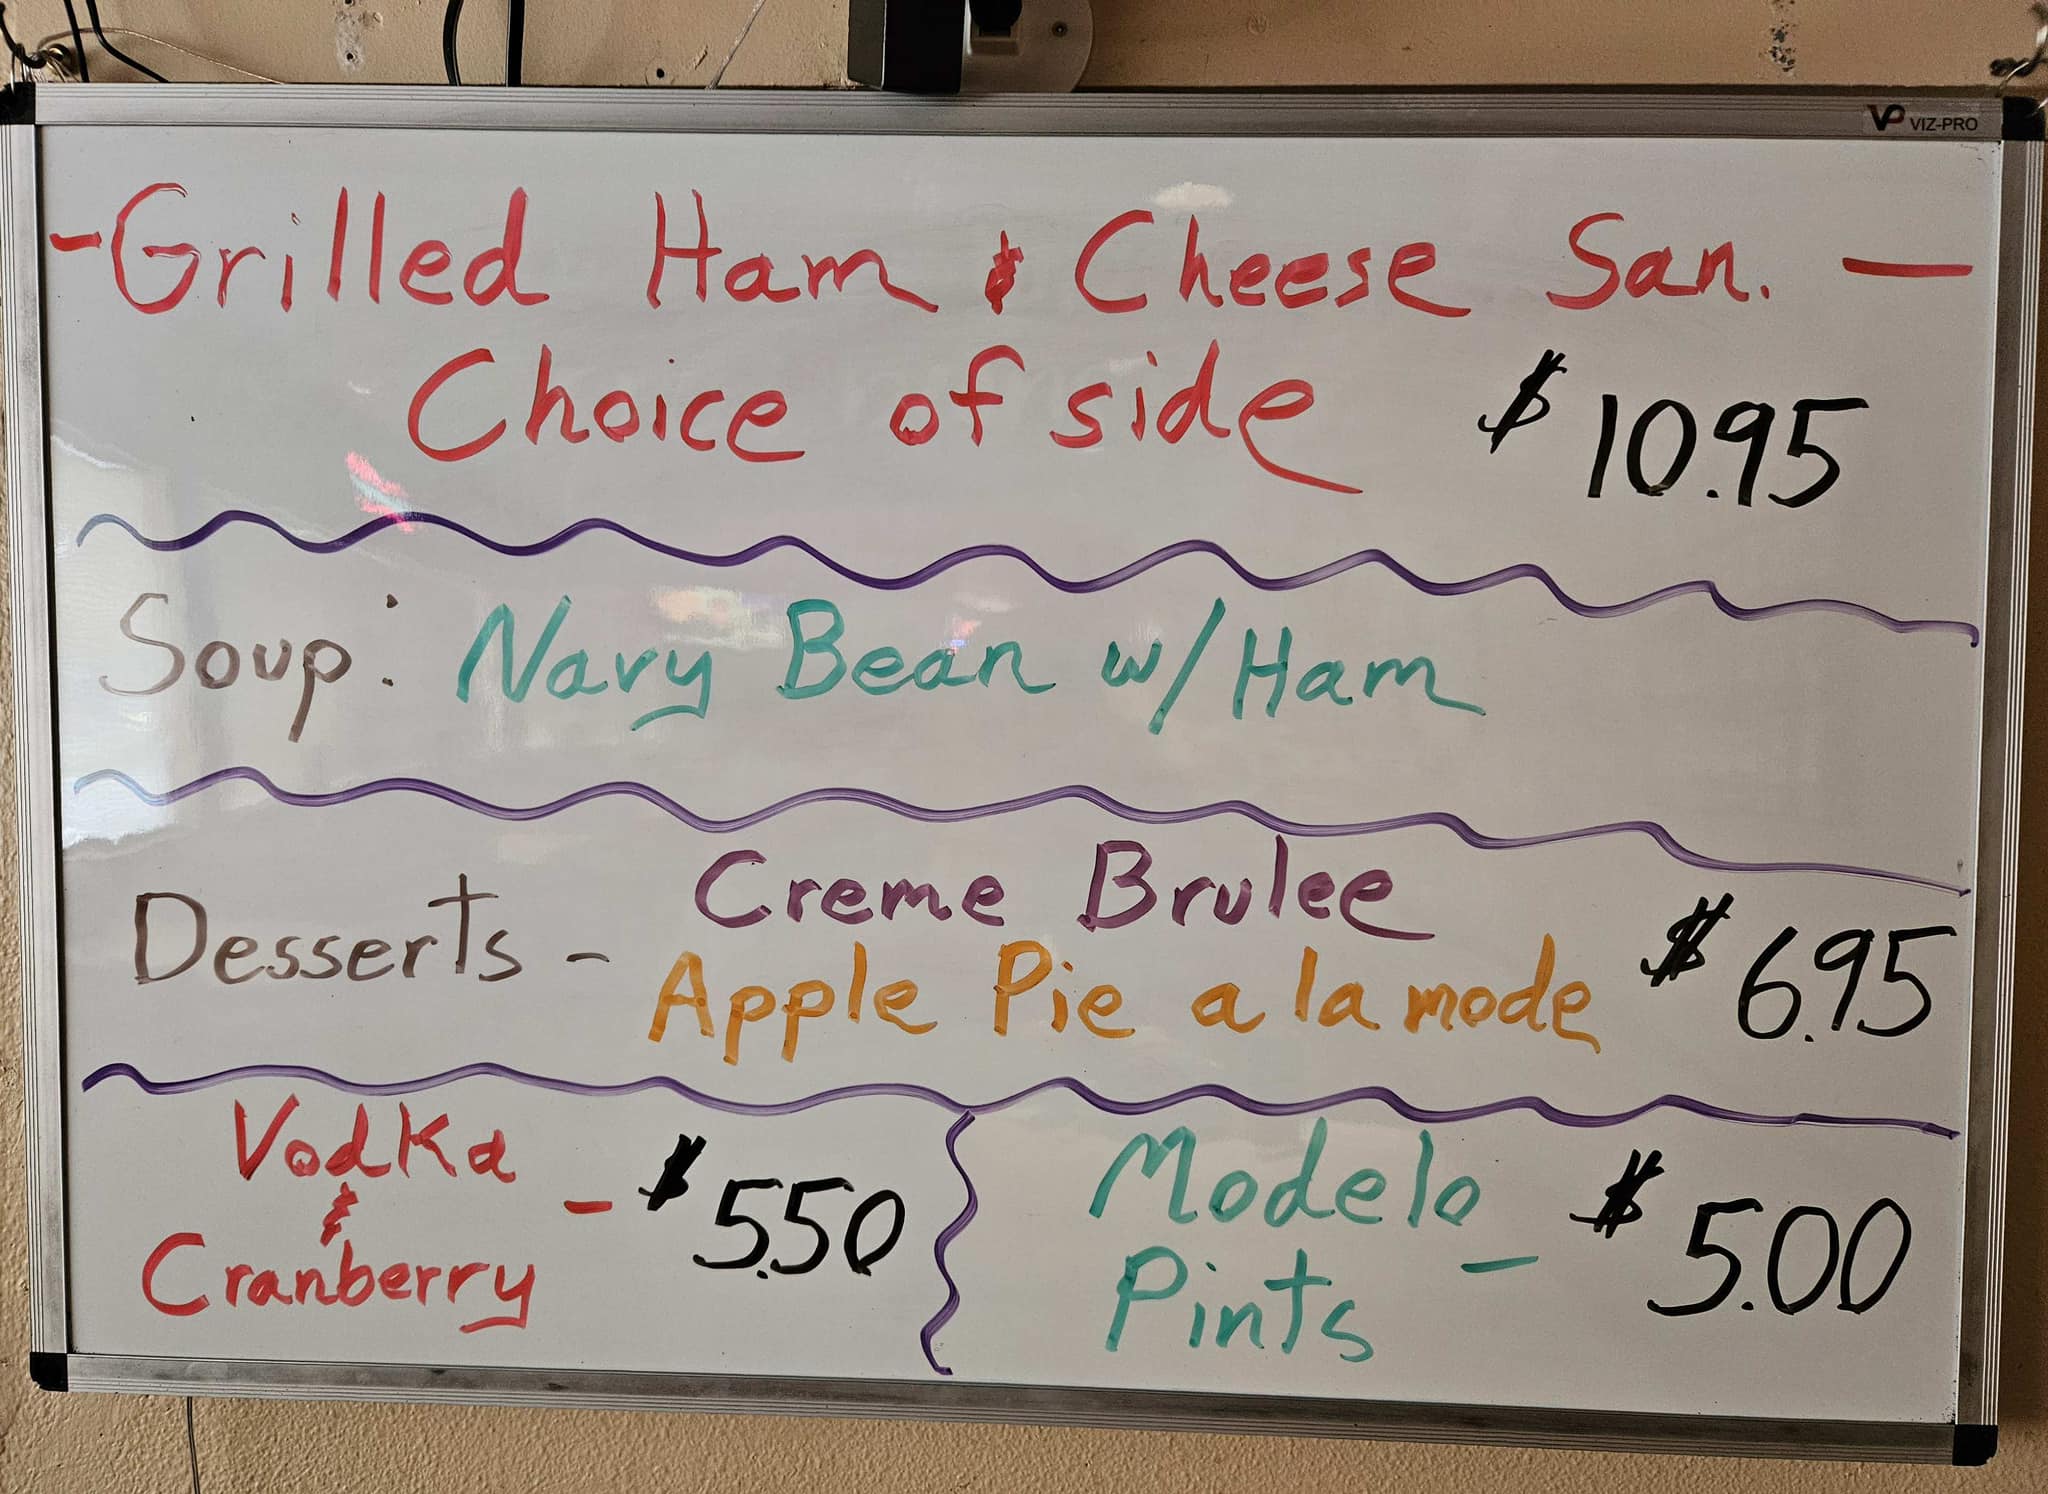 VP VIZ-PRO
- Grilled Ham & Cheese San. -
Choice of side $10.95
Soup: Navy Bean w/ Ham
Desserts - Creme Brulee
Apple Pie a la mode $6.95
Vodka
&
Cranberry - $5.50
Modelo
Pints - $5.00